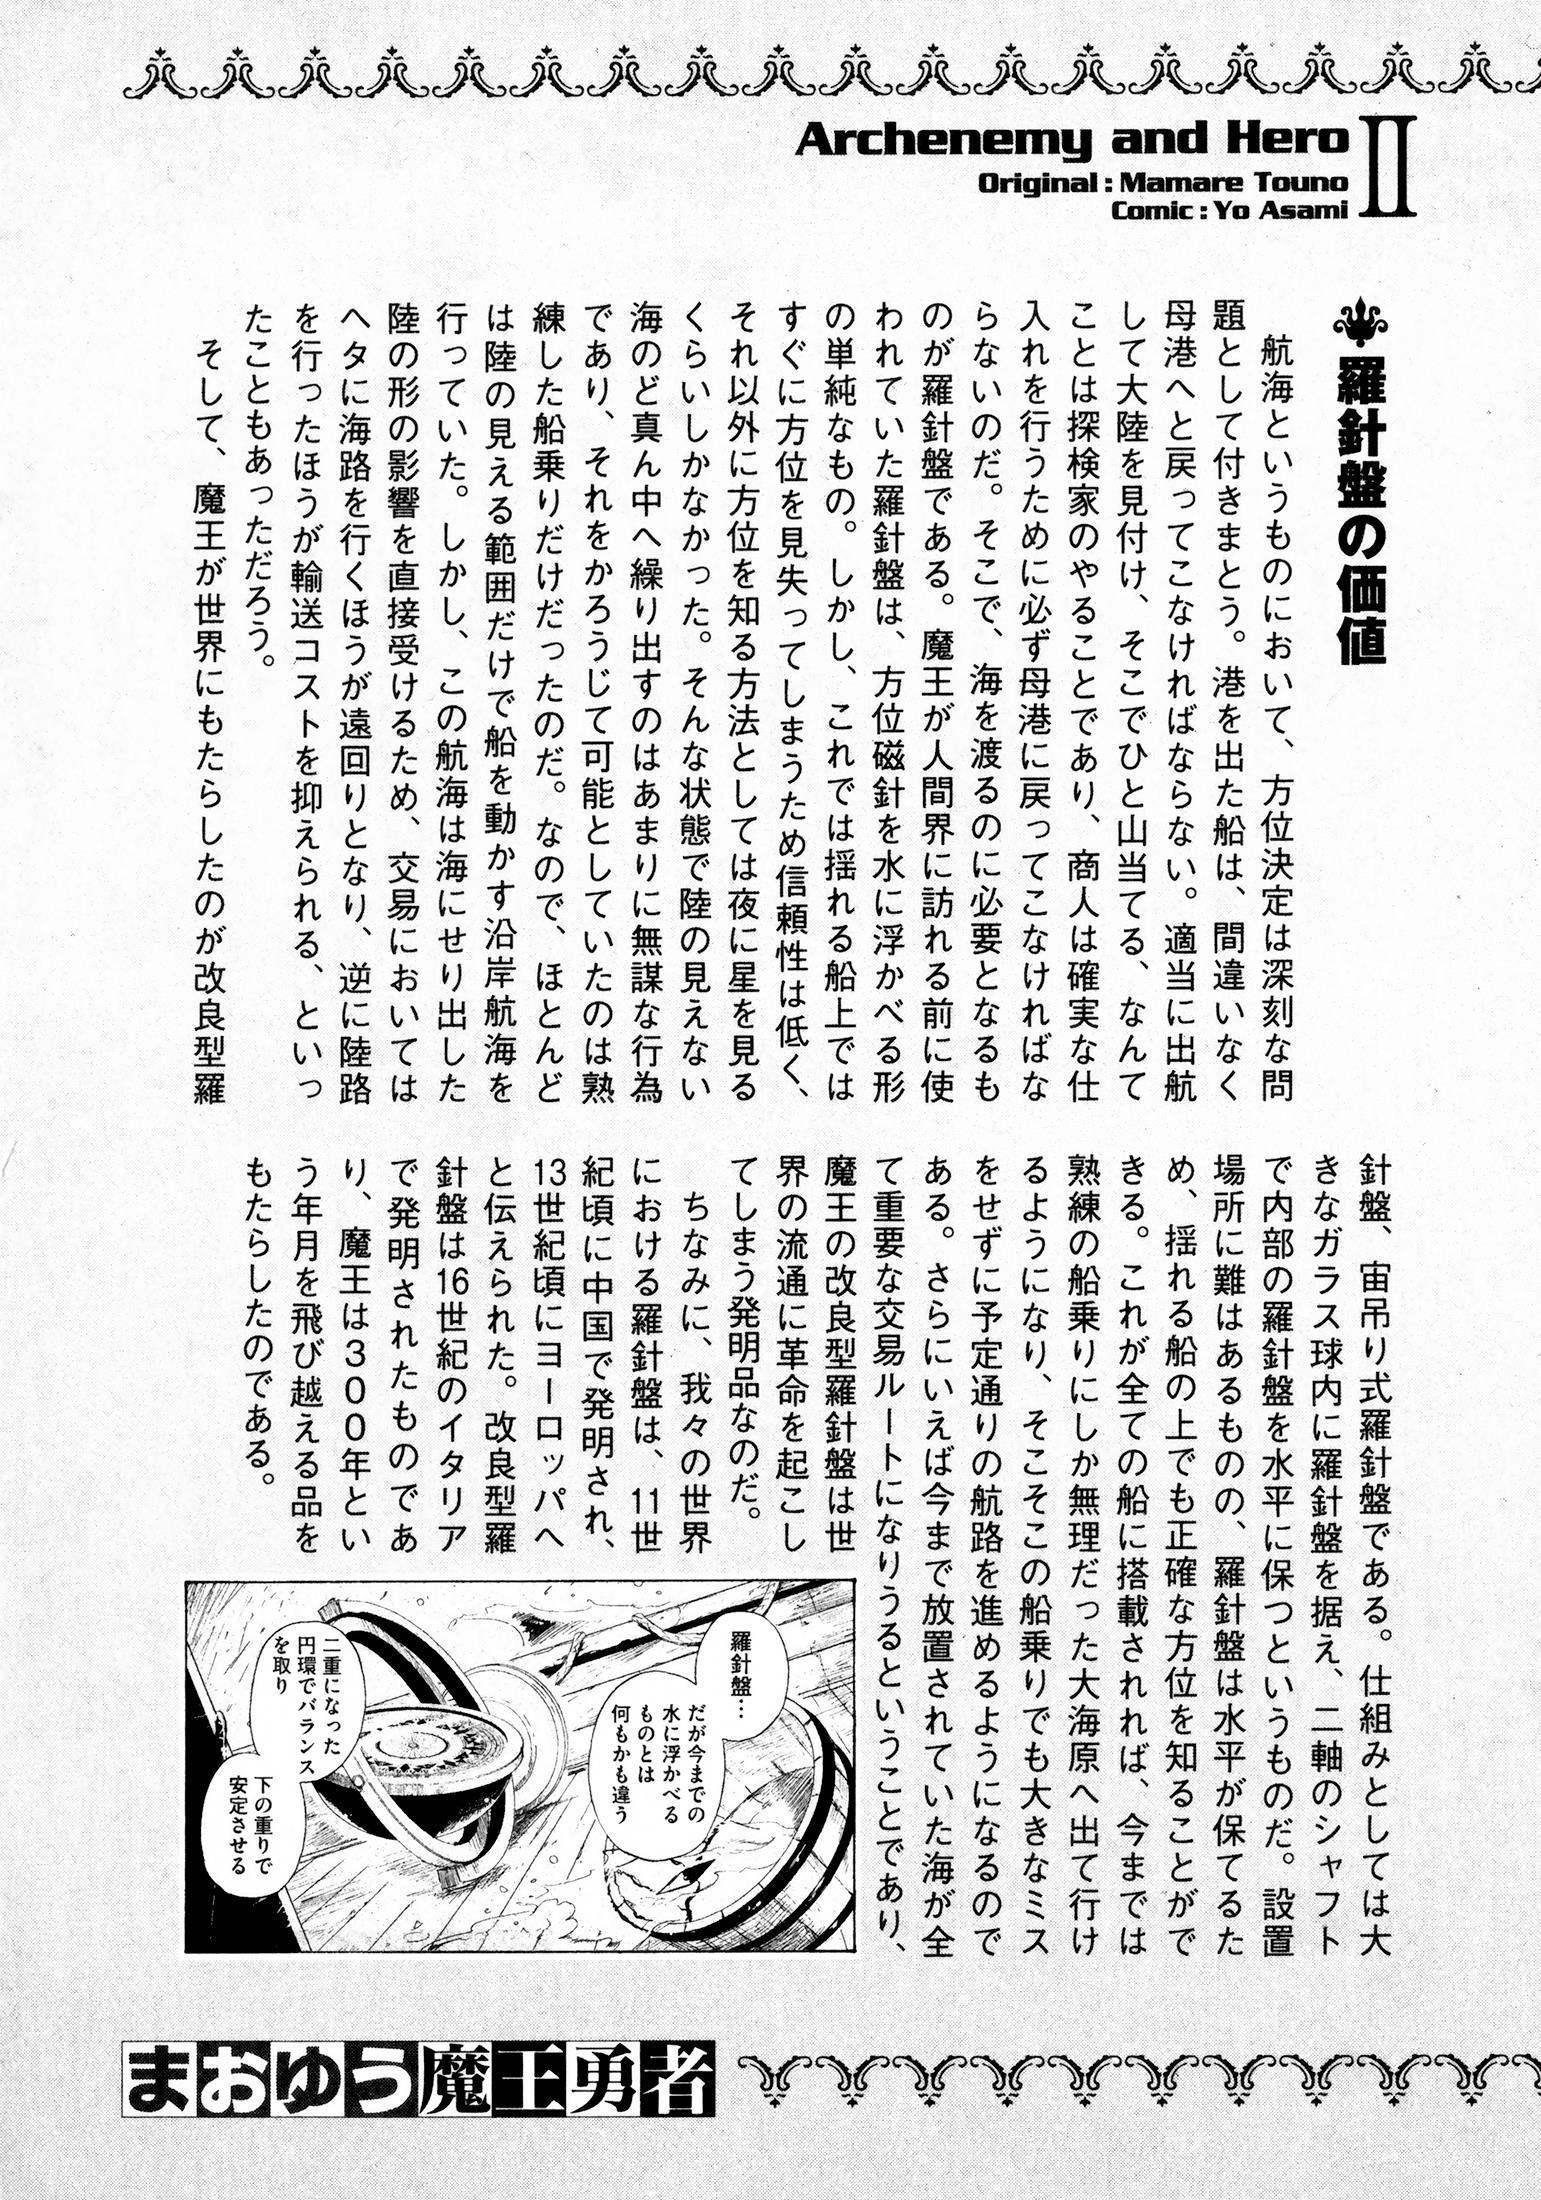 Archenemy and Hero II
Original : Mamare Touno
Comic : Yo Asami
羅針盤の価値
航海というものにおいて、方位決定は深刻な問
題として付きまとう。港を出た船は、間違いなく
母港へと戻ってこなければならない。適当に出航
して大陸を見付け、そこでひと山当てる、なんて
ことは探検家のやることであり、商人は確実な仕
入れを行うために必ず母港に戻ってこなければな
らないのだ。そこで、海を渡るのに必要となるも
のが羅針盤である。魔王が人間界に訪れる前に使
われていた羅針盤は、方位磁針を水に浮かべる形
の単純なもの。しかし、これでは揺れる船上では
すぐに方位を見失ってしまうため信頼性は低く、
それ以外に方位を知る方法としては夜に星を見る
くらいしかなかった。そんな状態で陸の見えない
海のど真ん中へ繰り出すのはあまりに無謀な行為
であり、それをかろうじて可能としていたのは熟
練した船乗りだけだったのだ。なので、ほとんど
は陸の見える範囲だけで船を動かす沿岸航海を
行っていた。しかし、この航海は海にせり出した
陸の形の影響を直接受けるため、交易においては
ヘタに海路を行くほうが遠回りとなり、逆に陸路
を行ったほうが輸送コストを抑えられる、といっ
たこともあっただろう。
そして、魔王が世界にもたらしたのが改良型羅
針盤、宙吊り式羅針盤である。仕組みとしては大
きなガラス球内に羅針盤を据え、二軸のシャフト
で内部の羅針盤を水平に保つというものだ。設置
場所に難はあるものの、羅針盤は水平が保てるた
め、揺れる船の上でも正確な方位を知ることがで
きる。これが全ての船に搭載されれば、今までは
熟練の船乗りにしか無理だった大海原へ出て行け
るようになり、そこそこの船乗りでも大きなミス
をせずに予定通りの航路を進めるようになるので
ある。さらにいえば今まで放置されていた海が全
て重要な交易ルートになりうるということであり、
魔王の改良型羅針盤は世
界の流通に革命を起こし
てしまう発明品なのだ。
ちなみに、我々の世界
における羅針盤は、11世
紀頃に中国で発明され、
13世紀頃にヨーロッパへ
と伝えられた。改良型羅
針盤は16世紀のイタリア
で発明されたものであ
り、魔王は300年とい
う年月を飛び越える品を
もたらしたのである。
羅針盤…
だが今までの
水に浮かべる
ものとは
何もかも違う
二重になった
円環でバランス
を取り
下の重りで
安定させる
まおゆう魔王勇者